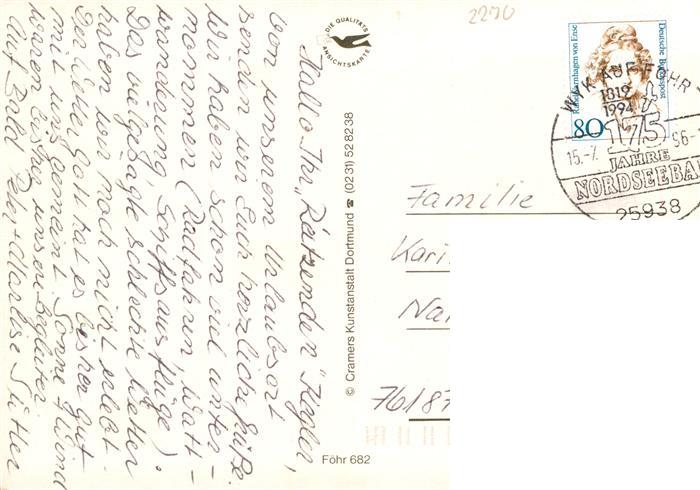 Hallo Ihr „Reizenden" Kegler,
von unserem Urlaubsort
senden wir Euch herzliche Grüße.
Wir haben schon viel unter-
nommen (Radfahren, Watt-
wanderung, Schiffsausflüge).
Das vielgesagte schlechte Wetter
haben wir noch nicht erlebt.
Der liebe Gott hat es bisher gut
mit uns gemeint. Sonne + Wind
waren bisher unsere Begleiter.
Auf Bald Peter + Marlise
DIE QUALITÄTS
ANSICHTSKARTE
© Cramers Kunstanstalt Dortmund ☎ (0231) 52 82 38
Föhr 682
2270
Deutsche Bundespost
Rahel Varnhagen von Ense
80
WYK AUF FÖHR
1819
1994
175
15.-7. 96-
JAHRE
NORDSEEBA
25938
Familie
Kari
Na
76187